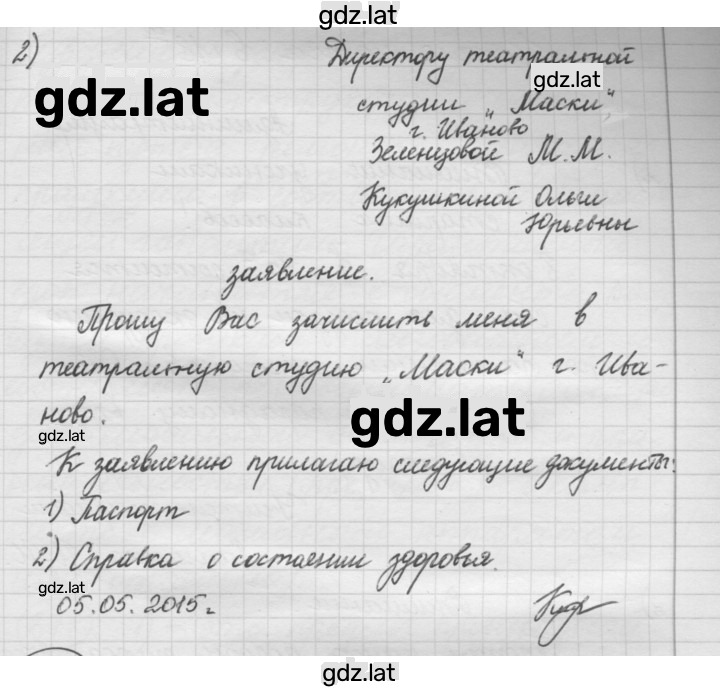 gdz.lat
2) Директору театральной
gdz.lat
gdz.lat
студии „Маски“
г. Иваново
Зеленцовой М.М.
Кукушкиной Ольги
Юрьевны
заявление.
Прошу Вас зачислить меня в
театральную студию „Маски“ г. Ива-
ново.
gdz.lat
gdz.lat
К заявлению прилагаю следующие документы:
1) Паспорт
2) Справка о состоянии здоровья.
gdz.lat
05.05.2015г.
gdz.lat